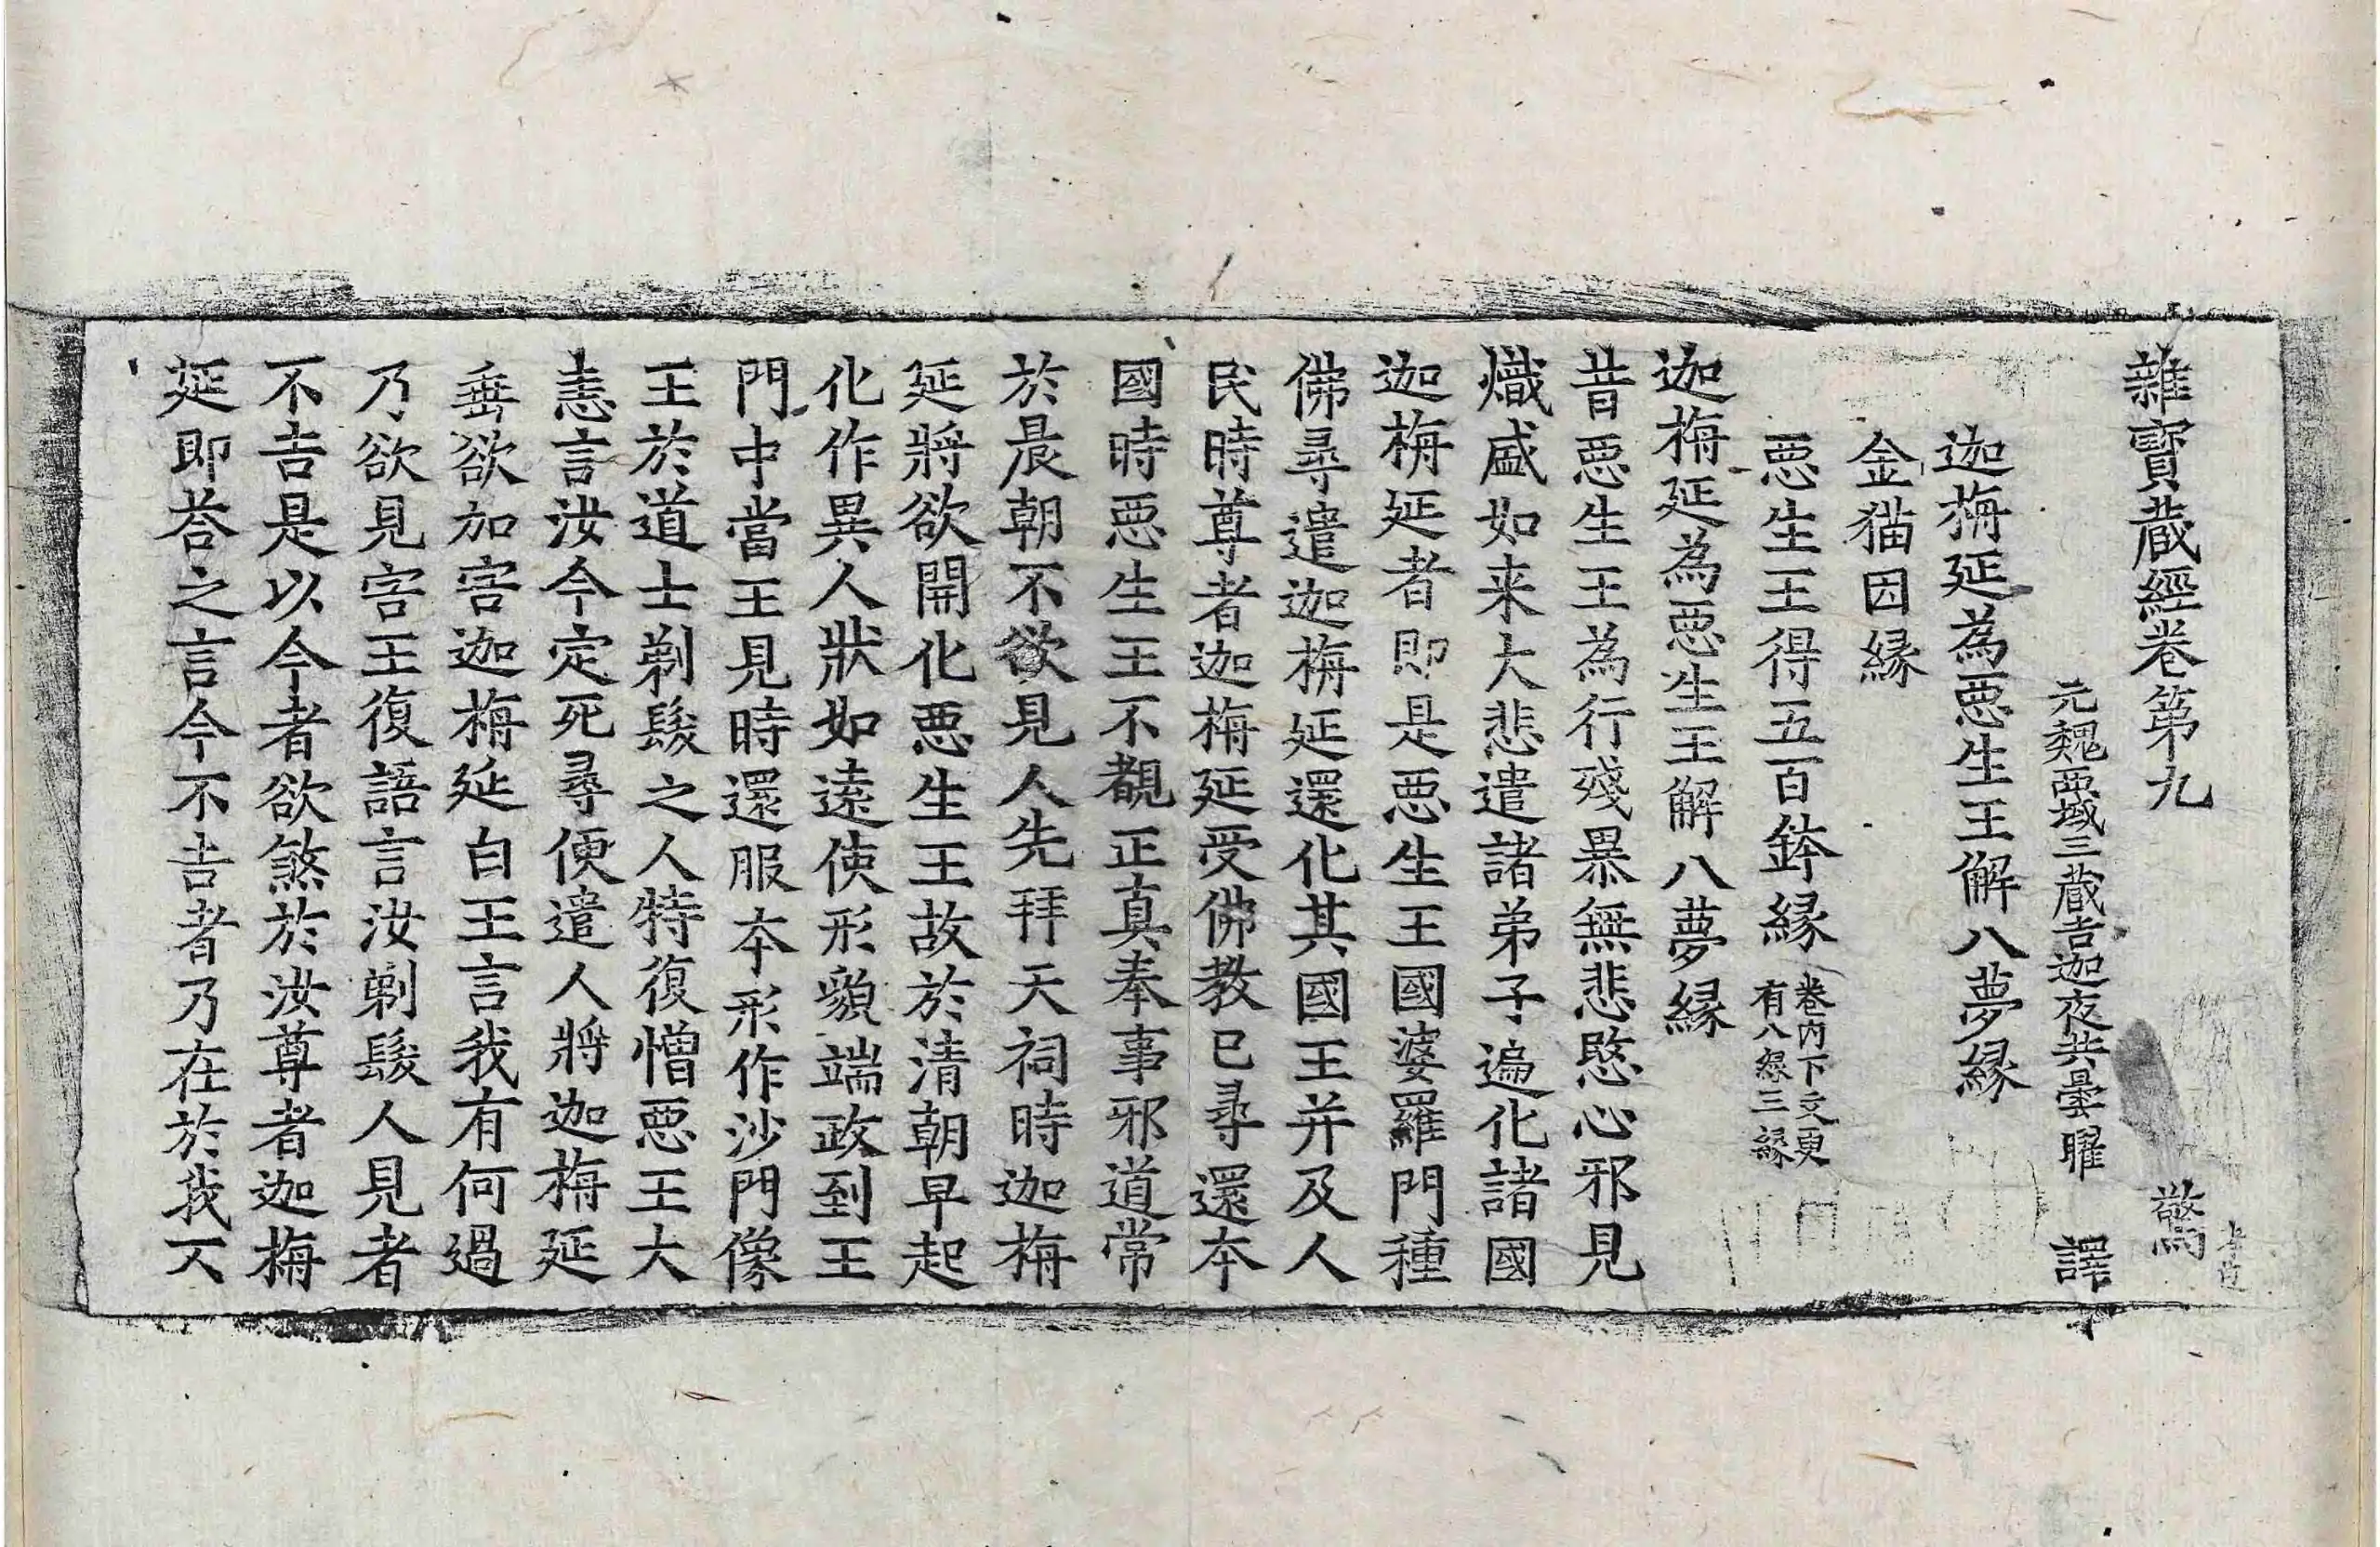 雜寶蔵經卷第九　驚
元魏西域三蔵吉迦夜共曇曜　譯
迦栴延為惡生王解八夢縁
金猫因縁
惡生王得五百鉢縁 卷内下文更有八縁三縁
迦栴延為惡生王解八夢縁
昔惡生王為行殘暴無悲愍心邪見
熾盛如来大悲遣諸弟子遍化諸國
迦栴延者即是惡生王國婆羅門種
佛尋遣迦栴延還化其國王并及人
民時尊者迦栴延受佛教已尋還本
國時惡生王不覩正真奉事邪道常
於晨朝不欲見人先拜天祠時迦栴
延將欲開化惡生王故於清朝早起
化作異人狀如遠使形貌端政到王
門中當王見時還服本形作沙門像
王於道士剃髮之人特復憎惡王大
恚言汝今定死尋便遣人將迦栴延
垂欲加害迦栴延白王言我有何過
乃欲見害王復語言汝剃髮人見者
不吉是以今者欲煞於汝尊者迦栴
延即荅之言今不吉者乃在於我不